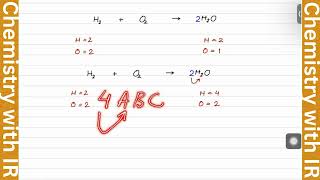 Chemistry with IR
H₂ + O₂ → 2H₂O
H = 2
O = 2
H = 2
O = 1
H₂ + O₂ → 2H₂O
H = 2
O = 2
4 ABC
H = 4
O = 2
Chemistry with IR